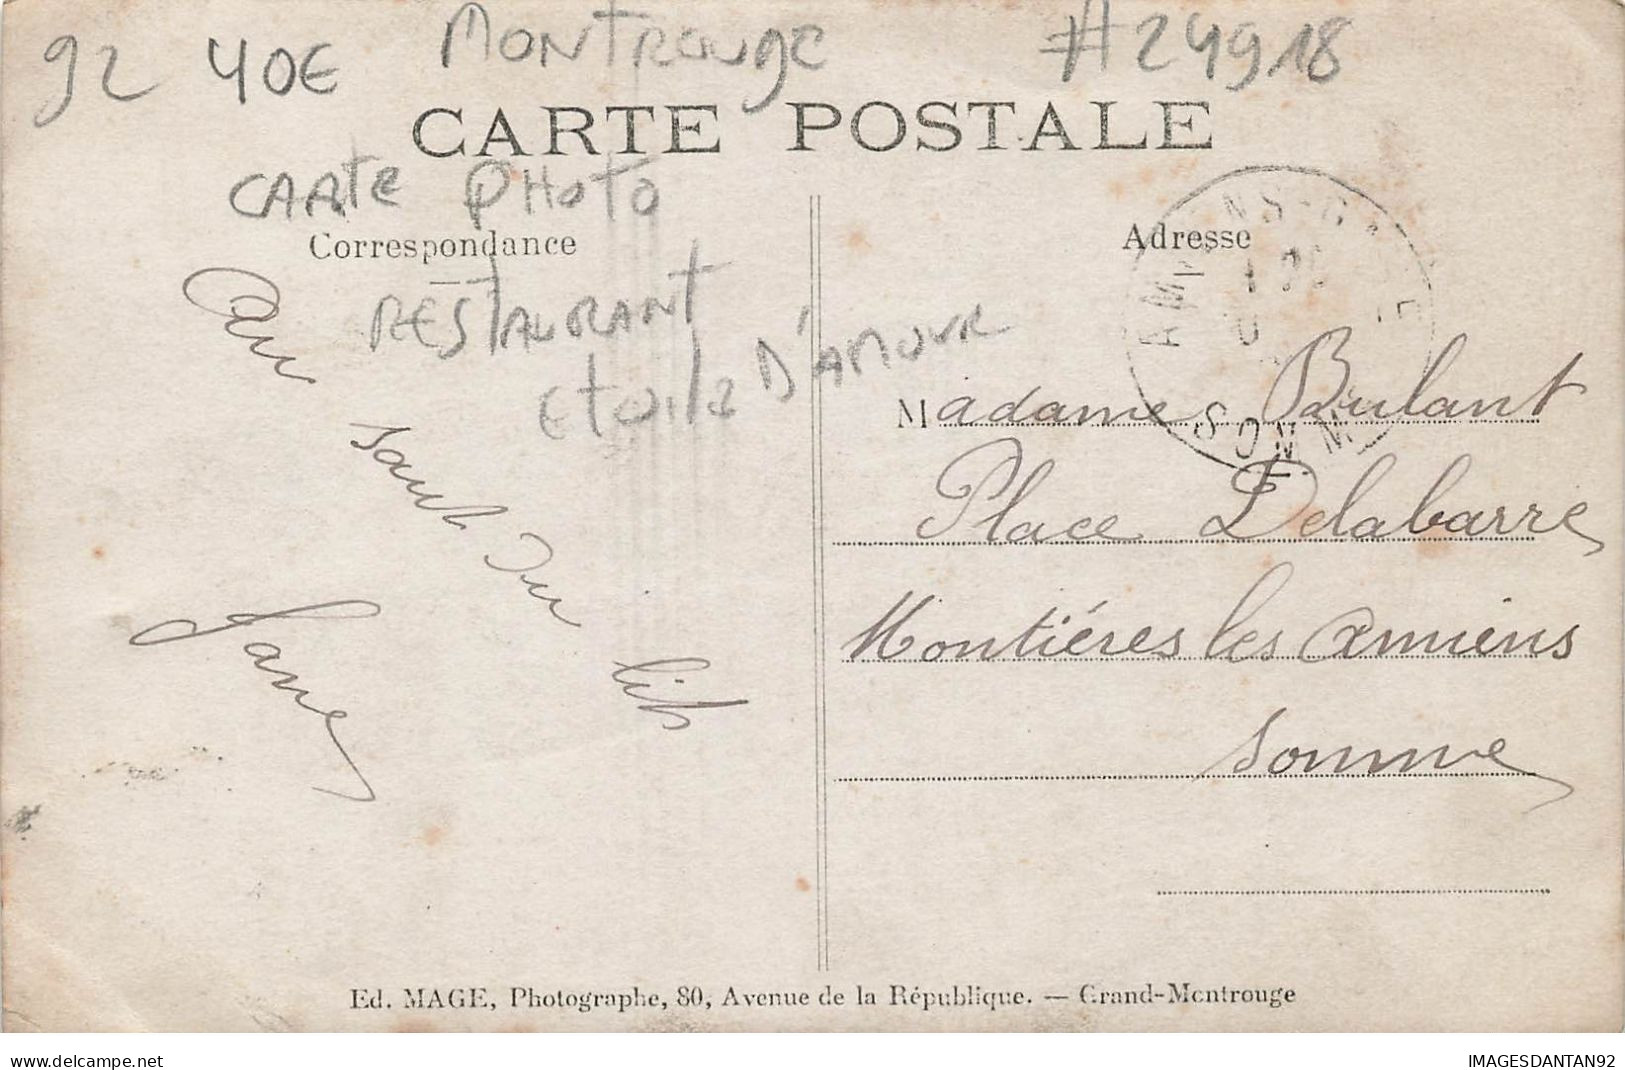 92 40€ MONTROUGE #24918
CARTE POSTALE
CARTE PHOTO
Correspondance
Adresse
RESTAURANT
ETOILE D'AMOUR
Au saut du lit
Jane
AMIENS-GARE
SOMME
Madame Bulant
Place Delabarre
Montiéres les Amiens
Somme
Ed. MAGE, Photographe, 80, Avenue de la République. — Grand-Montrouge
www.delcampe.net
IMAGESDANTAN92